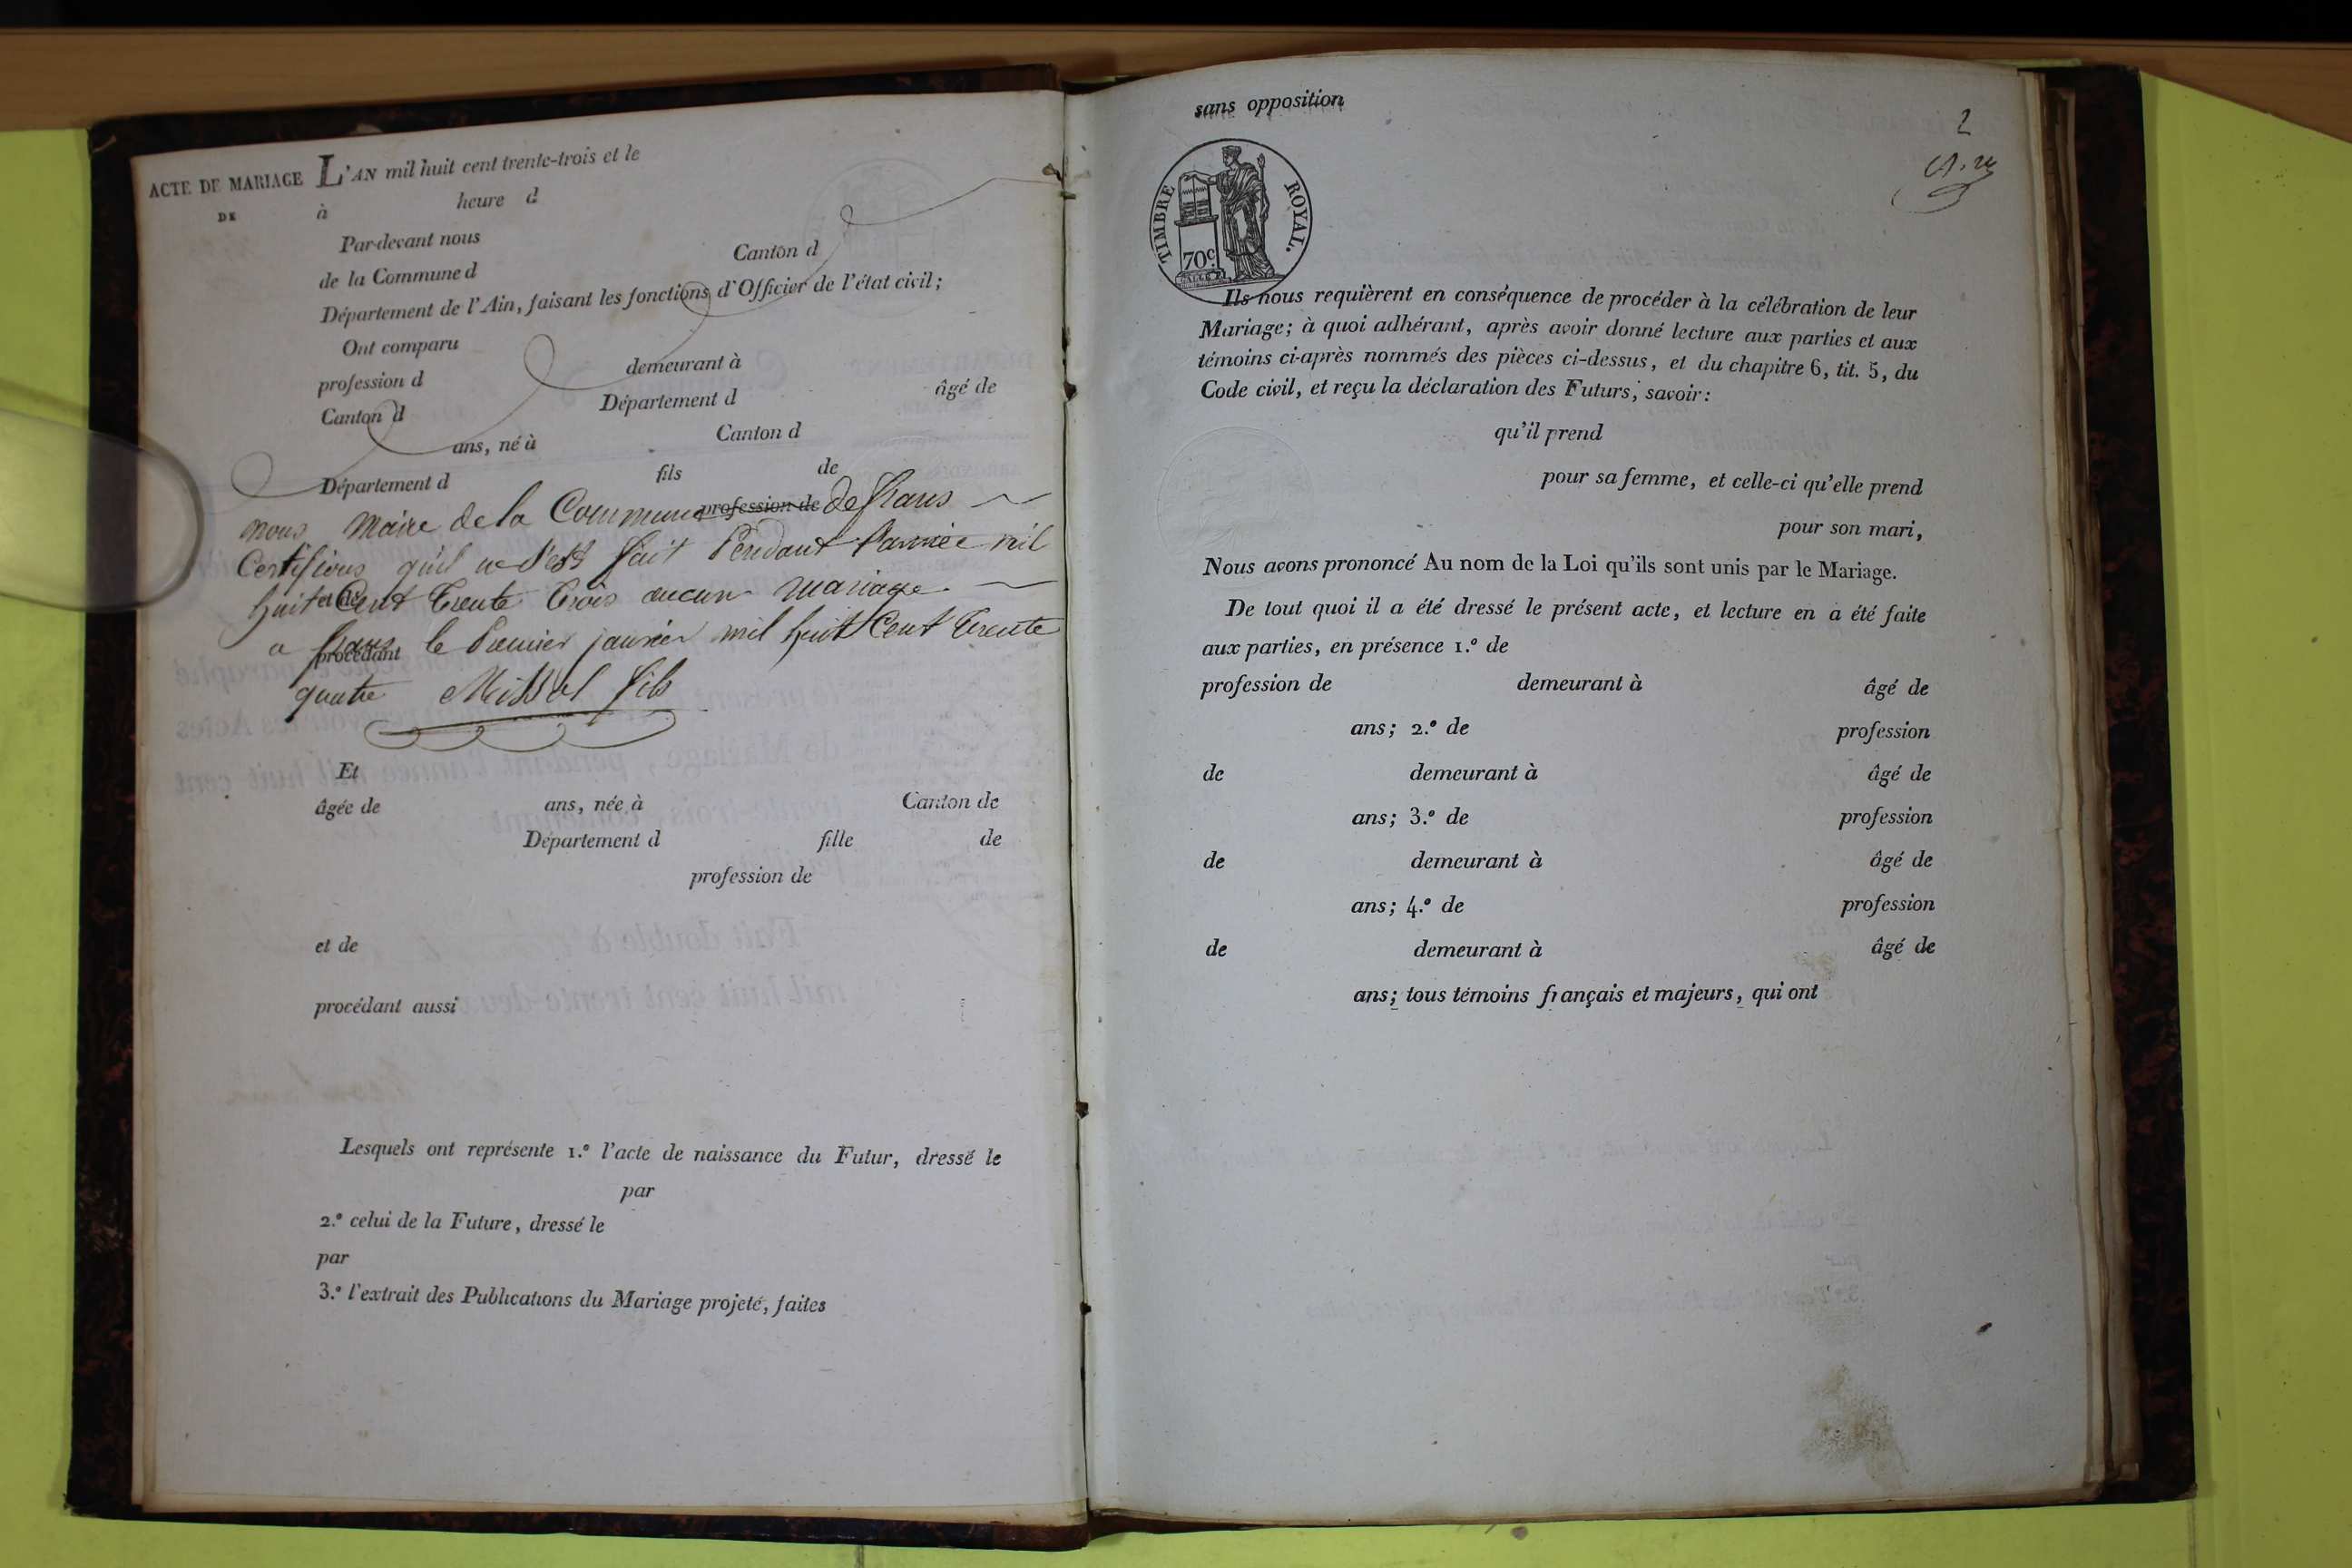 ACTE DE MARIAGE L'AN mil huit cent trente-trois et le
DE à heure d
Par-devant nous
de la Commune d Canton d
Département de l'Ain, faisant les fonctions d'Officier de l'état civil;
Ont comparu
profession d demeurant à
Canton d Département d âgé de
ans, né à Canton d
Département d fils de
nous Maire de la Commune profession de de frans
Certifions qu'il ne s'est fait Pendant l'année mil
et de
huit Cent trente trois aucun mariage
a frans le Premier janvier mil huit Cent trente
procédant
quatre Missol fils
Et
âgée de ans, née à Canton de
Département d fille de
profession de
et de
procédant aussi
Lesquels ont représente 1.° l'acte de naissance du Futur, dressé le
par
2.° celui de la Future, dressé le
par
3.° l'extrait des Publications du Mariage projeté, faites
sans opposition
2
TIMBRE ROYAL.
70c.
Ils nous requièrent en conséquence de procéder à la célébration de leur
Mariage; à quoi adhérant, après avoir donné lecture aux parties et aux
témoins ci-après nommés des pièces ci-dessus, et du chapitre 6, tit. 5, du
Code civil, et reçu la déclaration des Futurs, savoir:
qu'il prend
pour sa femme, et celle-ci qu'elle prend
pour son mari,
Nous avons prononcé Au nom de la Loi qu'ils sont unis par le Mariage.
De tout quoi il a été dressé le présent acte, et lecture en a été faite
aux parties, en présence 1.° de
profession de demeurant à âgé de
ans; 2.° de profession
de demeurant à âgé de
ans; 3.° de profession
de demeurant à âgé de
ans; 4.° de profession
de demeurant à âgé de
ans; tous témoins français et majeurs, qui ont